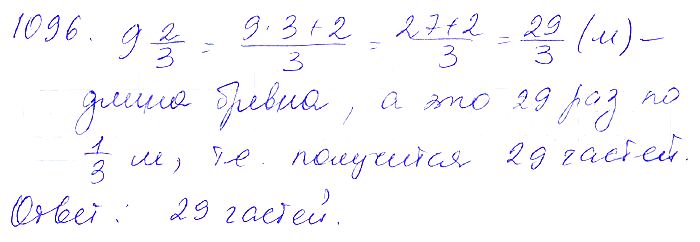 1096. 9 2/3 = (9·3+2)/3 = (27+2)/3 = 29/3 (м) –
длина бревна, а это 29 раз по
1/3 м, т.е. получится 29 частей.
Ответ: 29 частей.